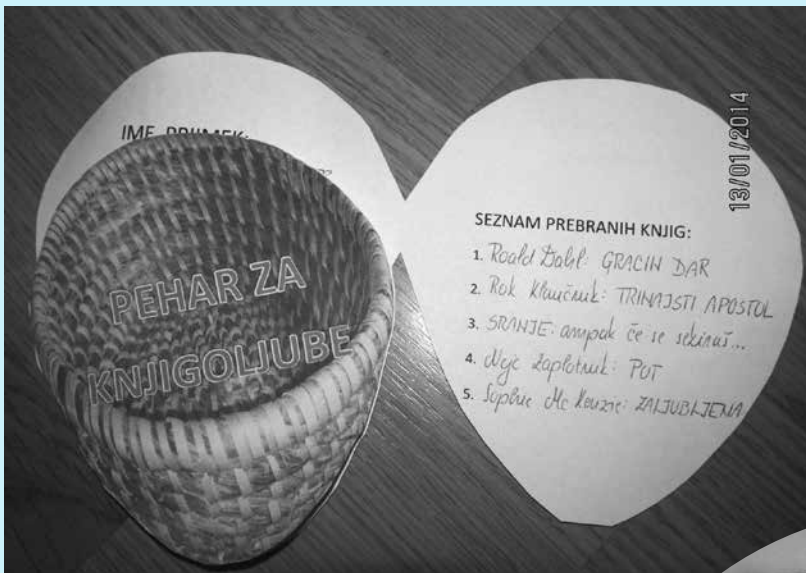 IME, PRIIMEK:
PEHAR ZA
KNJIGOLJUBE
13/01/2014
SEZNAM PREBRANIH KNJIG:
1. Roald Dahl: GRACIN DAR
2. Rok Kljucnik: TRINAJSTI APOSTOL
3. SRANJE: ampak če se sekiraš...
4. Nejc Zaplotnik: POT
5. Sophie Mc Kenzie: ZALJUBLJENA